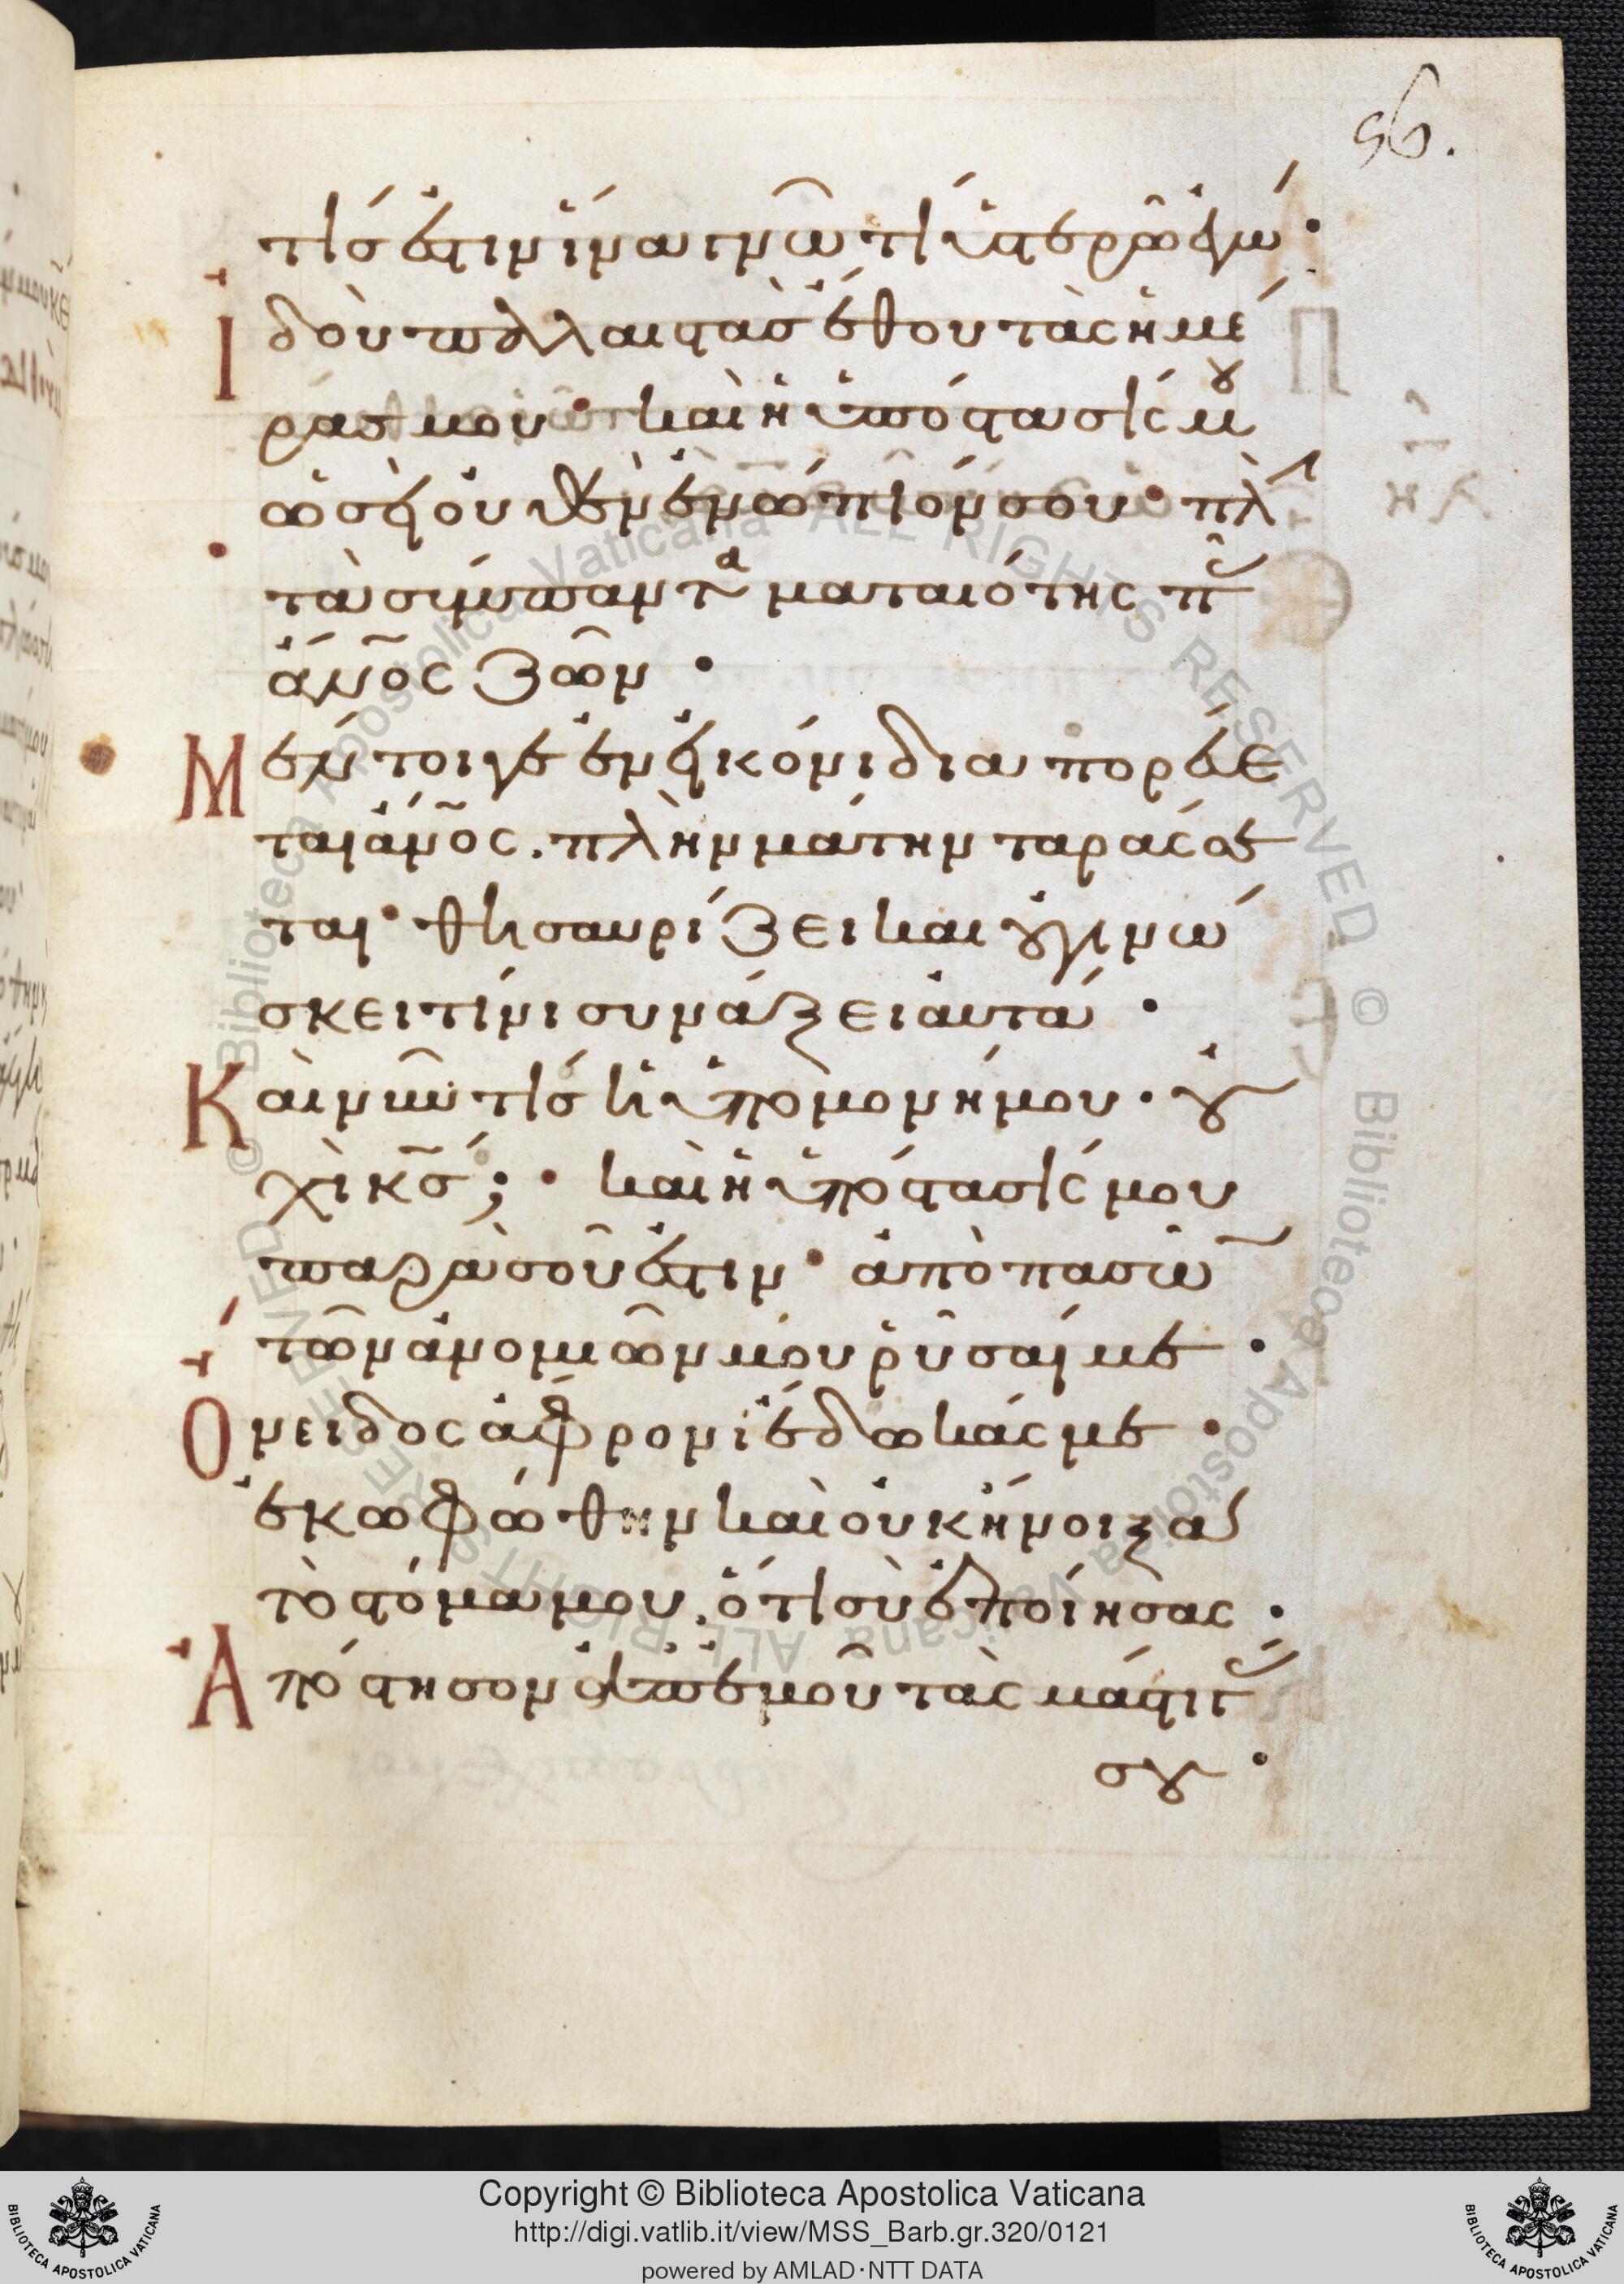 56.
τίς ἐστιν ἵνα γνῶ τί ὑστερῶ ἐγώ·
Ἰδοὺ παλαιστὰς ἔθου τὰς ἡμέ
ρας μου· καὶ ἡ ὑπόστασίς μου
ὡσεὶ οὐθὲν ἐνώπιόν σου· πλὴν
τὰ σύμπαντα ματαιότης πᾶς
ἄνος ζῶν·
Μέντοιγε ἐν εἰκόνι διαπορεύε
ται ἄνος. πλὴν μάτην ταράσσε
ται· θησαυρίζει καὶ οὐ γινώ
σκει τίνι συνάξει αὐτά·
Καὶ νῦν τίς ἡ ὑπομονή μου· οὐ
χὶ κς; · καὶ ἡ ὑπόστασίς μου
παρὰ σοῦ ἐστιν· ἀπὸ πασῶν
τῶν ἀνομιῶν μου ῥῦσαί με·
Ὄνειδος ἄφρονι ἔδωκάς με·
ἐκωφώθην καὶ οὐκ ἤνοιξα
τὸ στόμα μου. ὅτι σὺ ἐποίησας·
Ἀπόστησον ἀπ' ἐμοῦ τὰς μάστιγάς
σου·
Copyright © Biblioteca Apostolica Vaticana
http://digi.vatlib.it/view/MSS_Barb.gr.320/0121
powered by AMLAD·NTT DATA
BIBLIOTECA APOSTOLICA VATICANA
BIBLIOTECA APOSTOLICA VATICANA
© Biblioteca Apostolica Vaticana ALL RIGHTS RESERVED © Biblioteca Apostolica Vaticana ALL RIGHTS RESERVED